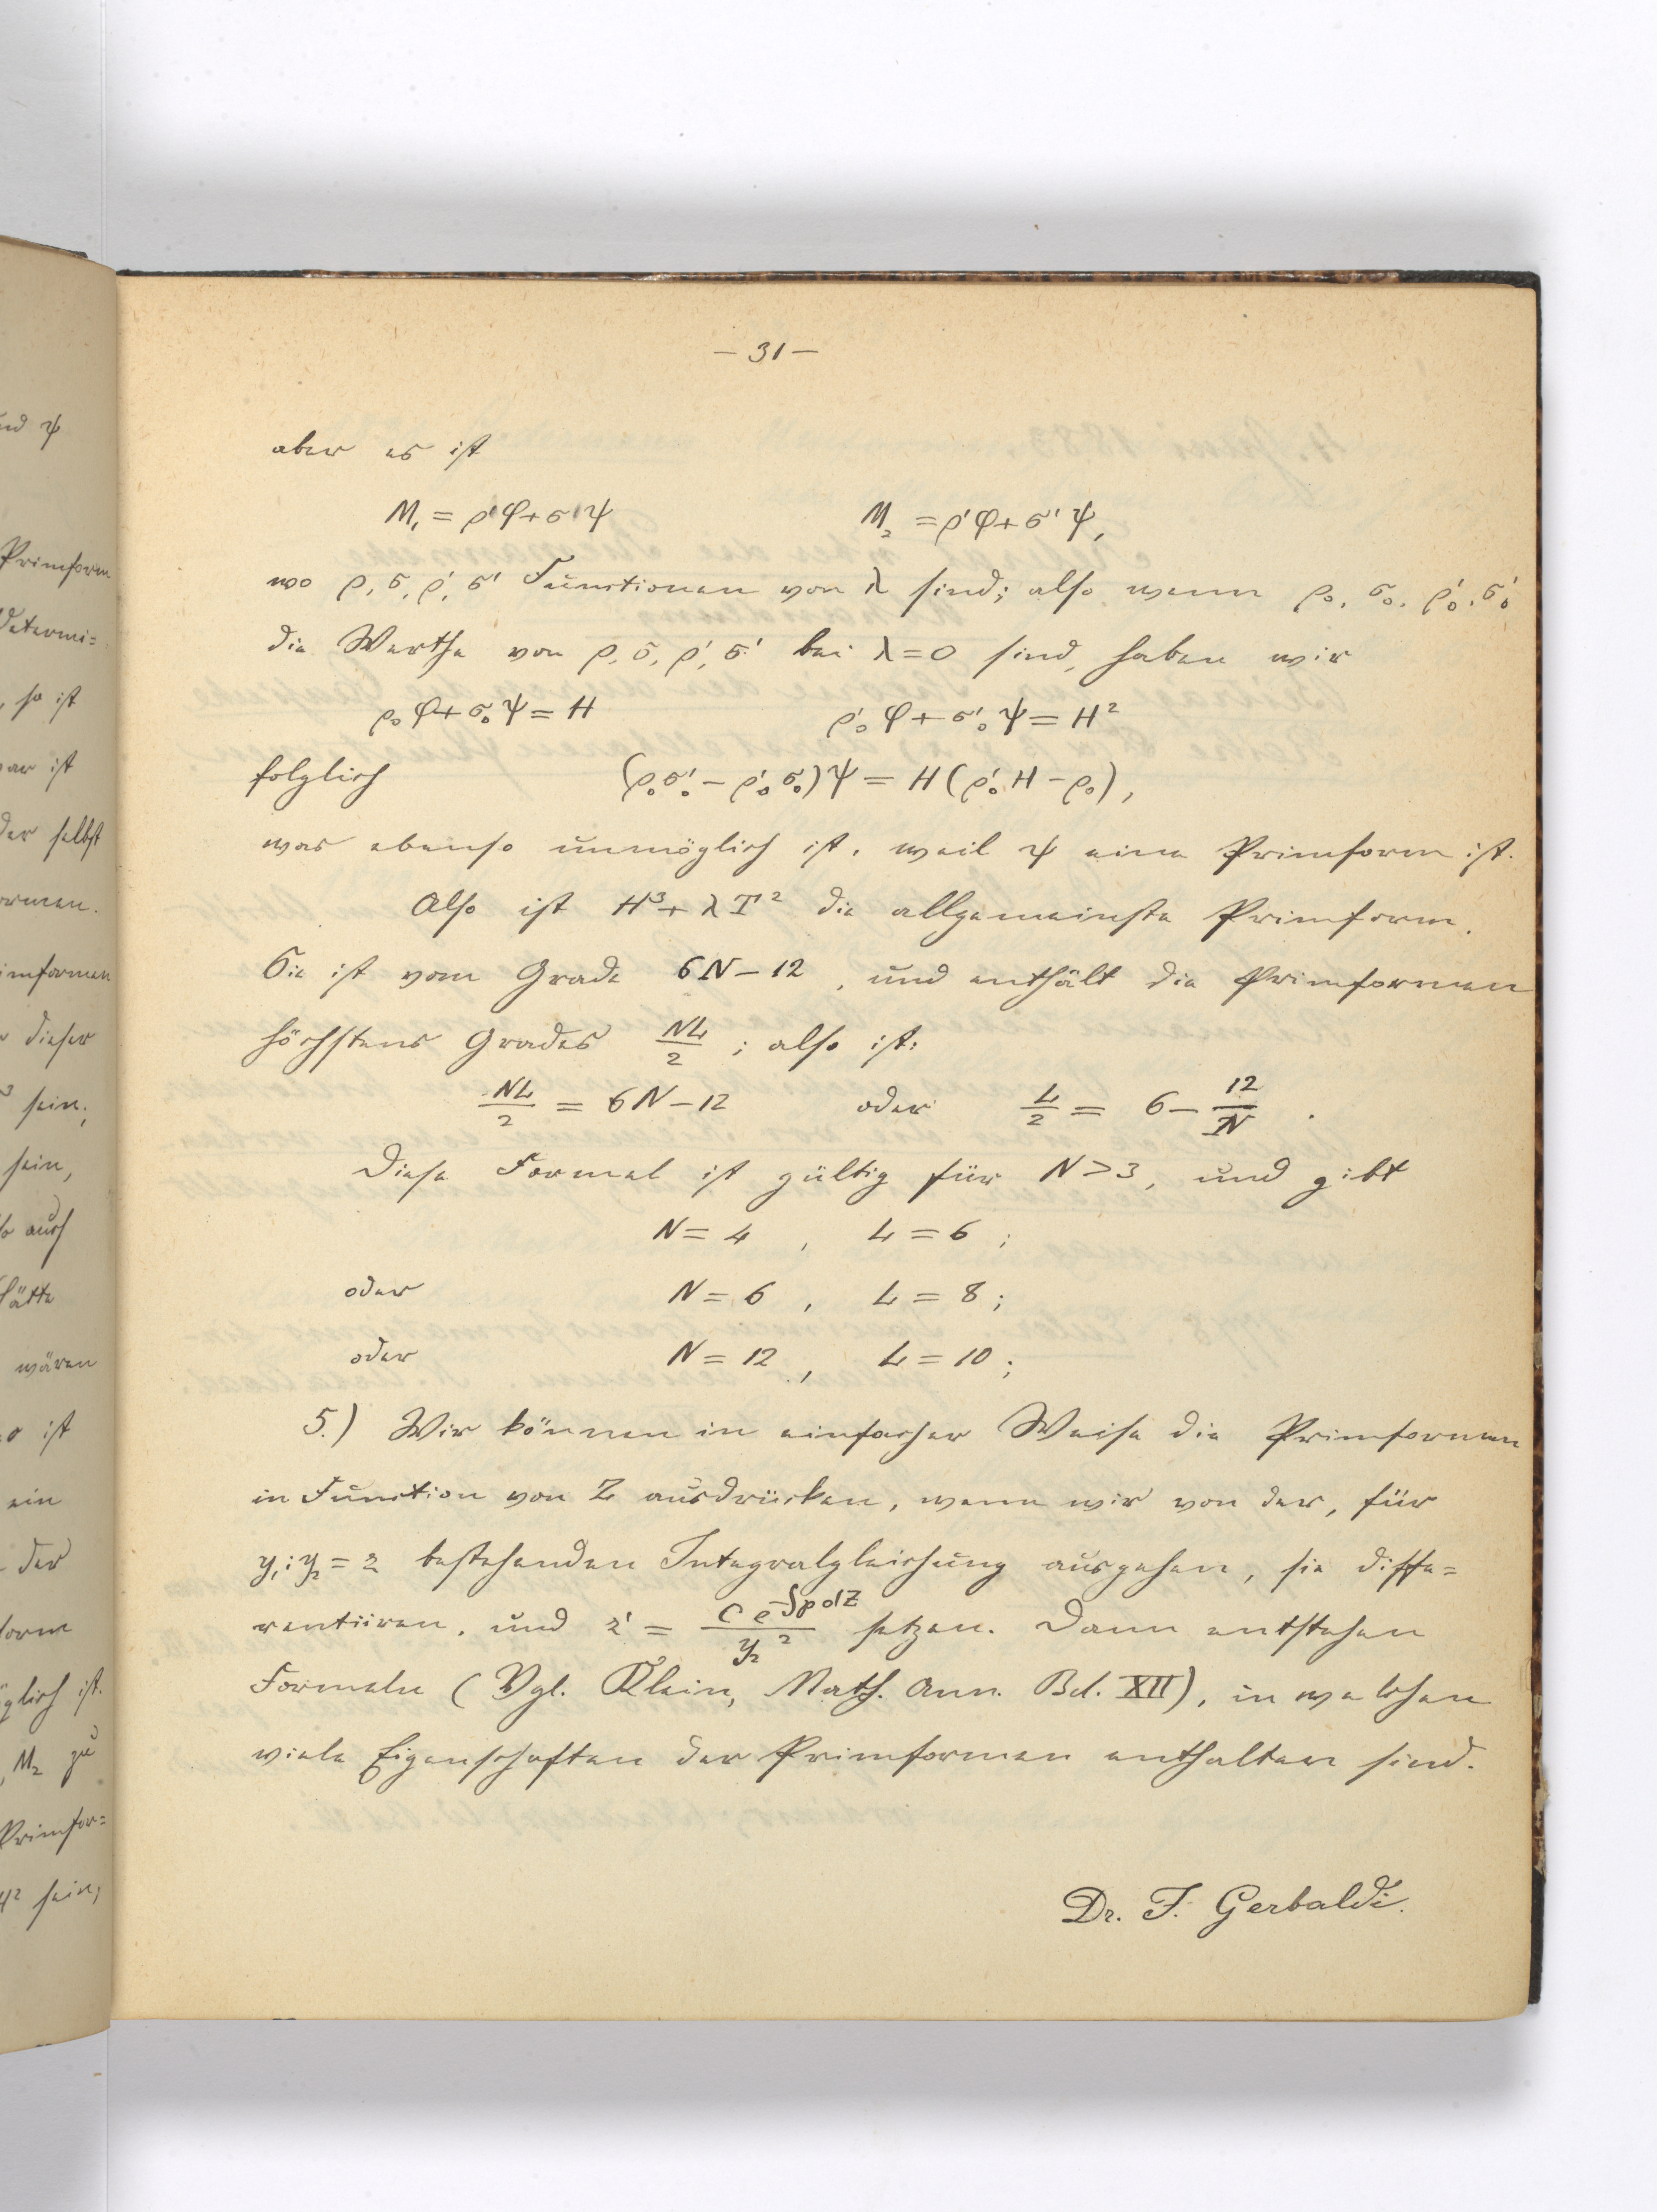 — 31 —
aber es ist
M₁ = ρφ + σψ M₂ = ρ'φ + σ'ψ,
wo ρ, σ, ρ', σ' Functionen von λ sind; also wenn ρ₀, σ₀, ρ'₀, σ'₀
die Werthe von ρ, σ, ρ', σ' bei λ = 0 sind, haben wir
ρ₀φ + σ₀ψ = H ρ'₀φ + σ'₀ψ = H²
folglich (ρ₀σ'₀ − ρ'₀σ₀)ψ = H(ρ'₀H − ρ₀),
was ebenso unmöglich ist, weil ψ eine Primform ist.
Also ist H³ + λT² die allgemeinste Primform.
Sie ist vom Grade 6N − 12, und enthält die Primformen
höchstens Grades NL/2; also ist:
NL/2 = 6N − 12 oder L/2 = 6 − 12/N.
Diese Formel ist gültig für N > 3, und gibt
N = 4, L = 6;
oder N = 6, L = 8;
oder N = 12, L = 10;
5.) Wir können in einfacher Weise die Primformen
in Function von Z ausdrücken, wenn wir von der, für
y₁:y₂ = z bestehenden Integralgleichung ausgehen, sie diffe=
rentiiren, und z' = C e^(−∫p dZ)/y₂² setzen. Dann entstehen
Formeln (Vgl. Klein, Math. Ann. Bd. XII), in welchen
viele Eigenschaften der Primformen enthalten sind.
Dr. F. Gerbaldi.
nd ψ
Primform
determi=
, so ist
ar ist
der selbst
ormen.
imformen
dieser
³ sein;
sein,
auch
hätte
wären
o ist
ein
der
form
glich ist.
, M₂ zu
Primfor=
H² sein,